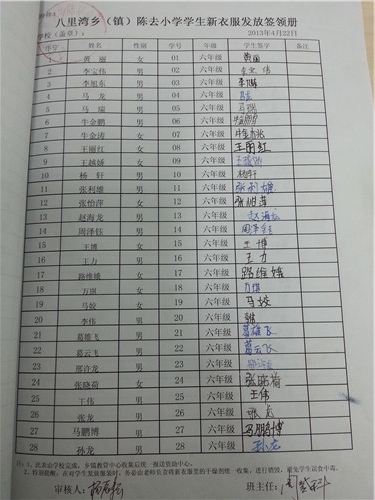 八里湾乡（镇）陈去小学学生新衣服发放签领册
学校（盖章）： 2013年4月22日
序号 姓名 性别 学号 年级 学生签字 备注
1 黄丽 女 01 六年级 黄丽
2 李宝伟 男 02 六年级
3 李旭东 男 03 六年级
4 马龙 男 04 六年级
5 马瑞 男 05 六年级 马瑞
6 牛全鹏 男 06 六年级 牛全鹏
7 牛金涛 女 07 六年级
8 王丽红 女 08 六年级 王丽红
9 王越娇 女 09 六年级
10 杨轩 男 10 六年级 杨轩
11 张利雄 男 11 六年级 张利雄
12 张怡萍 女 12 六年级 张怡萍
13 赵海龙 男 13 六年级 赵海龙
14 周泽钰 男 14 六年级
15 王博 女 15 六年级 王博
16 王力 男 16 六年级 王力
17 路维娥 女 17 六年级 路维娥
18 万琪 女 18 六年级 万琪
19 马姣 女 19 六年级 马姣
20 李伟 男 20 六年级
21 葛雄飞 男 21 六年级 葛雄飞
22 葛云飞 男 22 六年级 葛云飞
23 邢许龙 男 23 六年级
24 张晓荷 女 24 六年级 张晓荷
25 王伟 男 25 六年级 王伟
26 张龙 男 26 六年级 张龙
27 马鹏博 男 27 六年级 马鹏博
28 孙龙 男 28 六年级 孙龙
注：1、此表由学校完成，乡镇教管中心收集后统一报送资助中心。
审核人： 班主任：